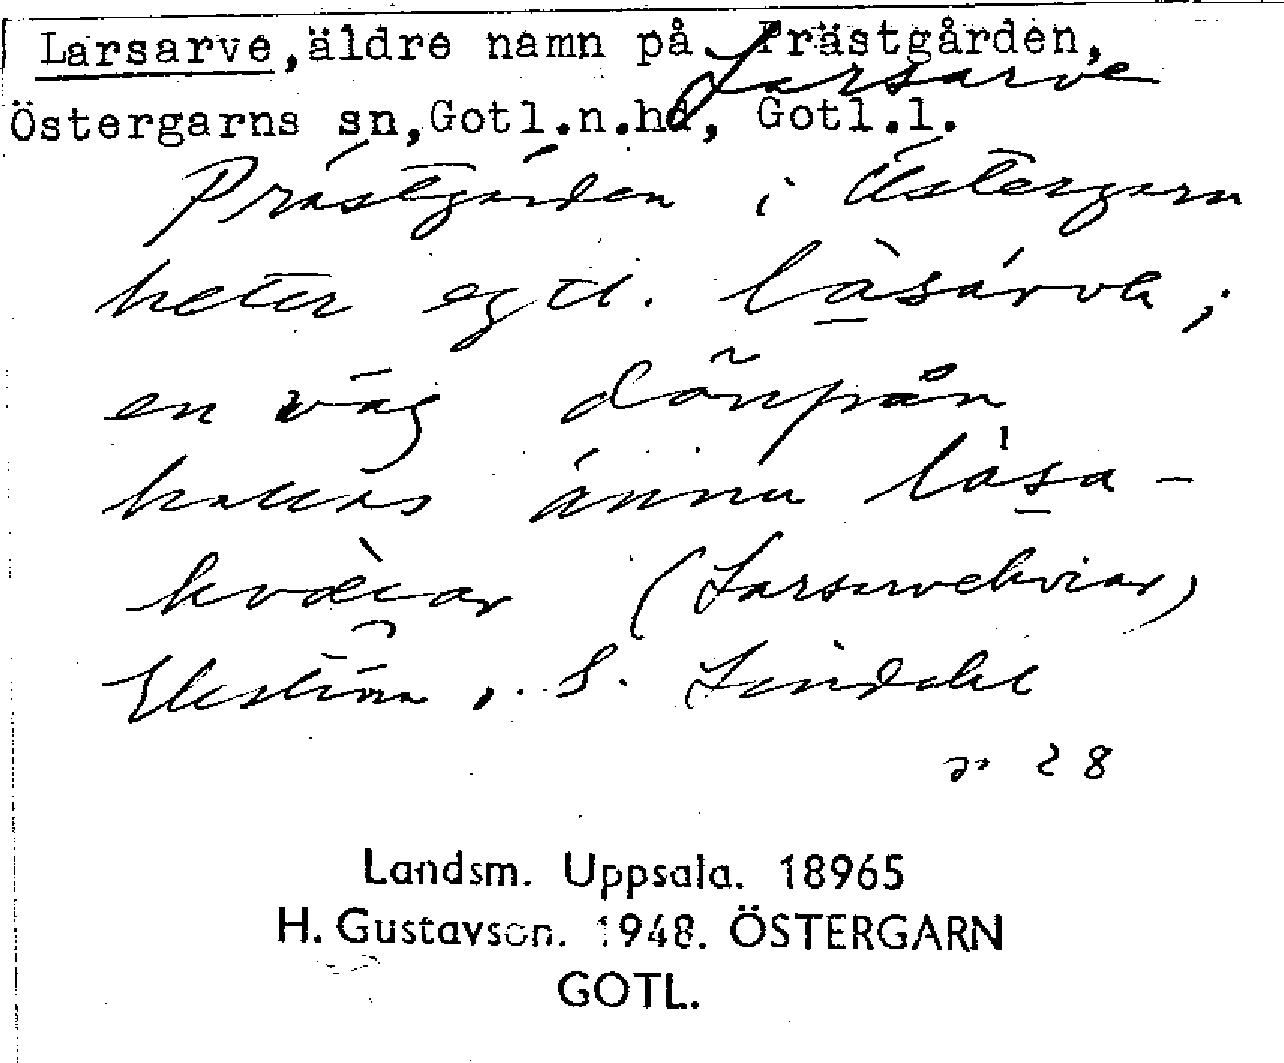 Larsarve, äldre namn på Prästgården,
Larsarve
Östergarns sn, Gotl.n.hd, Gotl.l.
Prästgården i Östergarn
heter egtl. làsárva ;
en väg dönfrån
kallas ännu låsa-
(Larsarvekviar)
S. Lindahl
28
Landsm. Uppsala. 18965
H. Gustavson. 1948. ÖSTERGARN
GOTL.